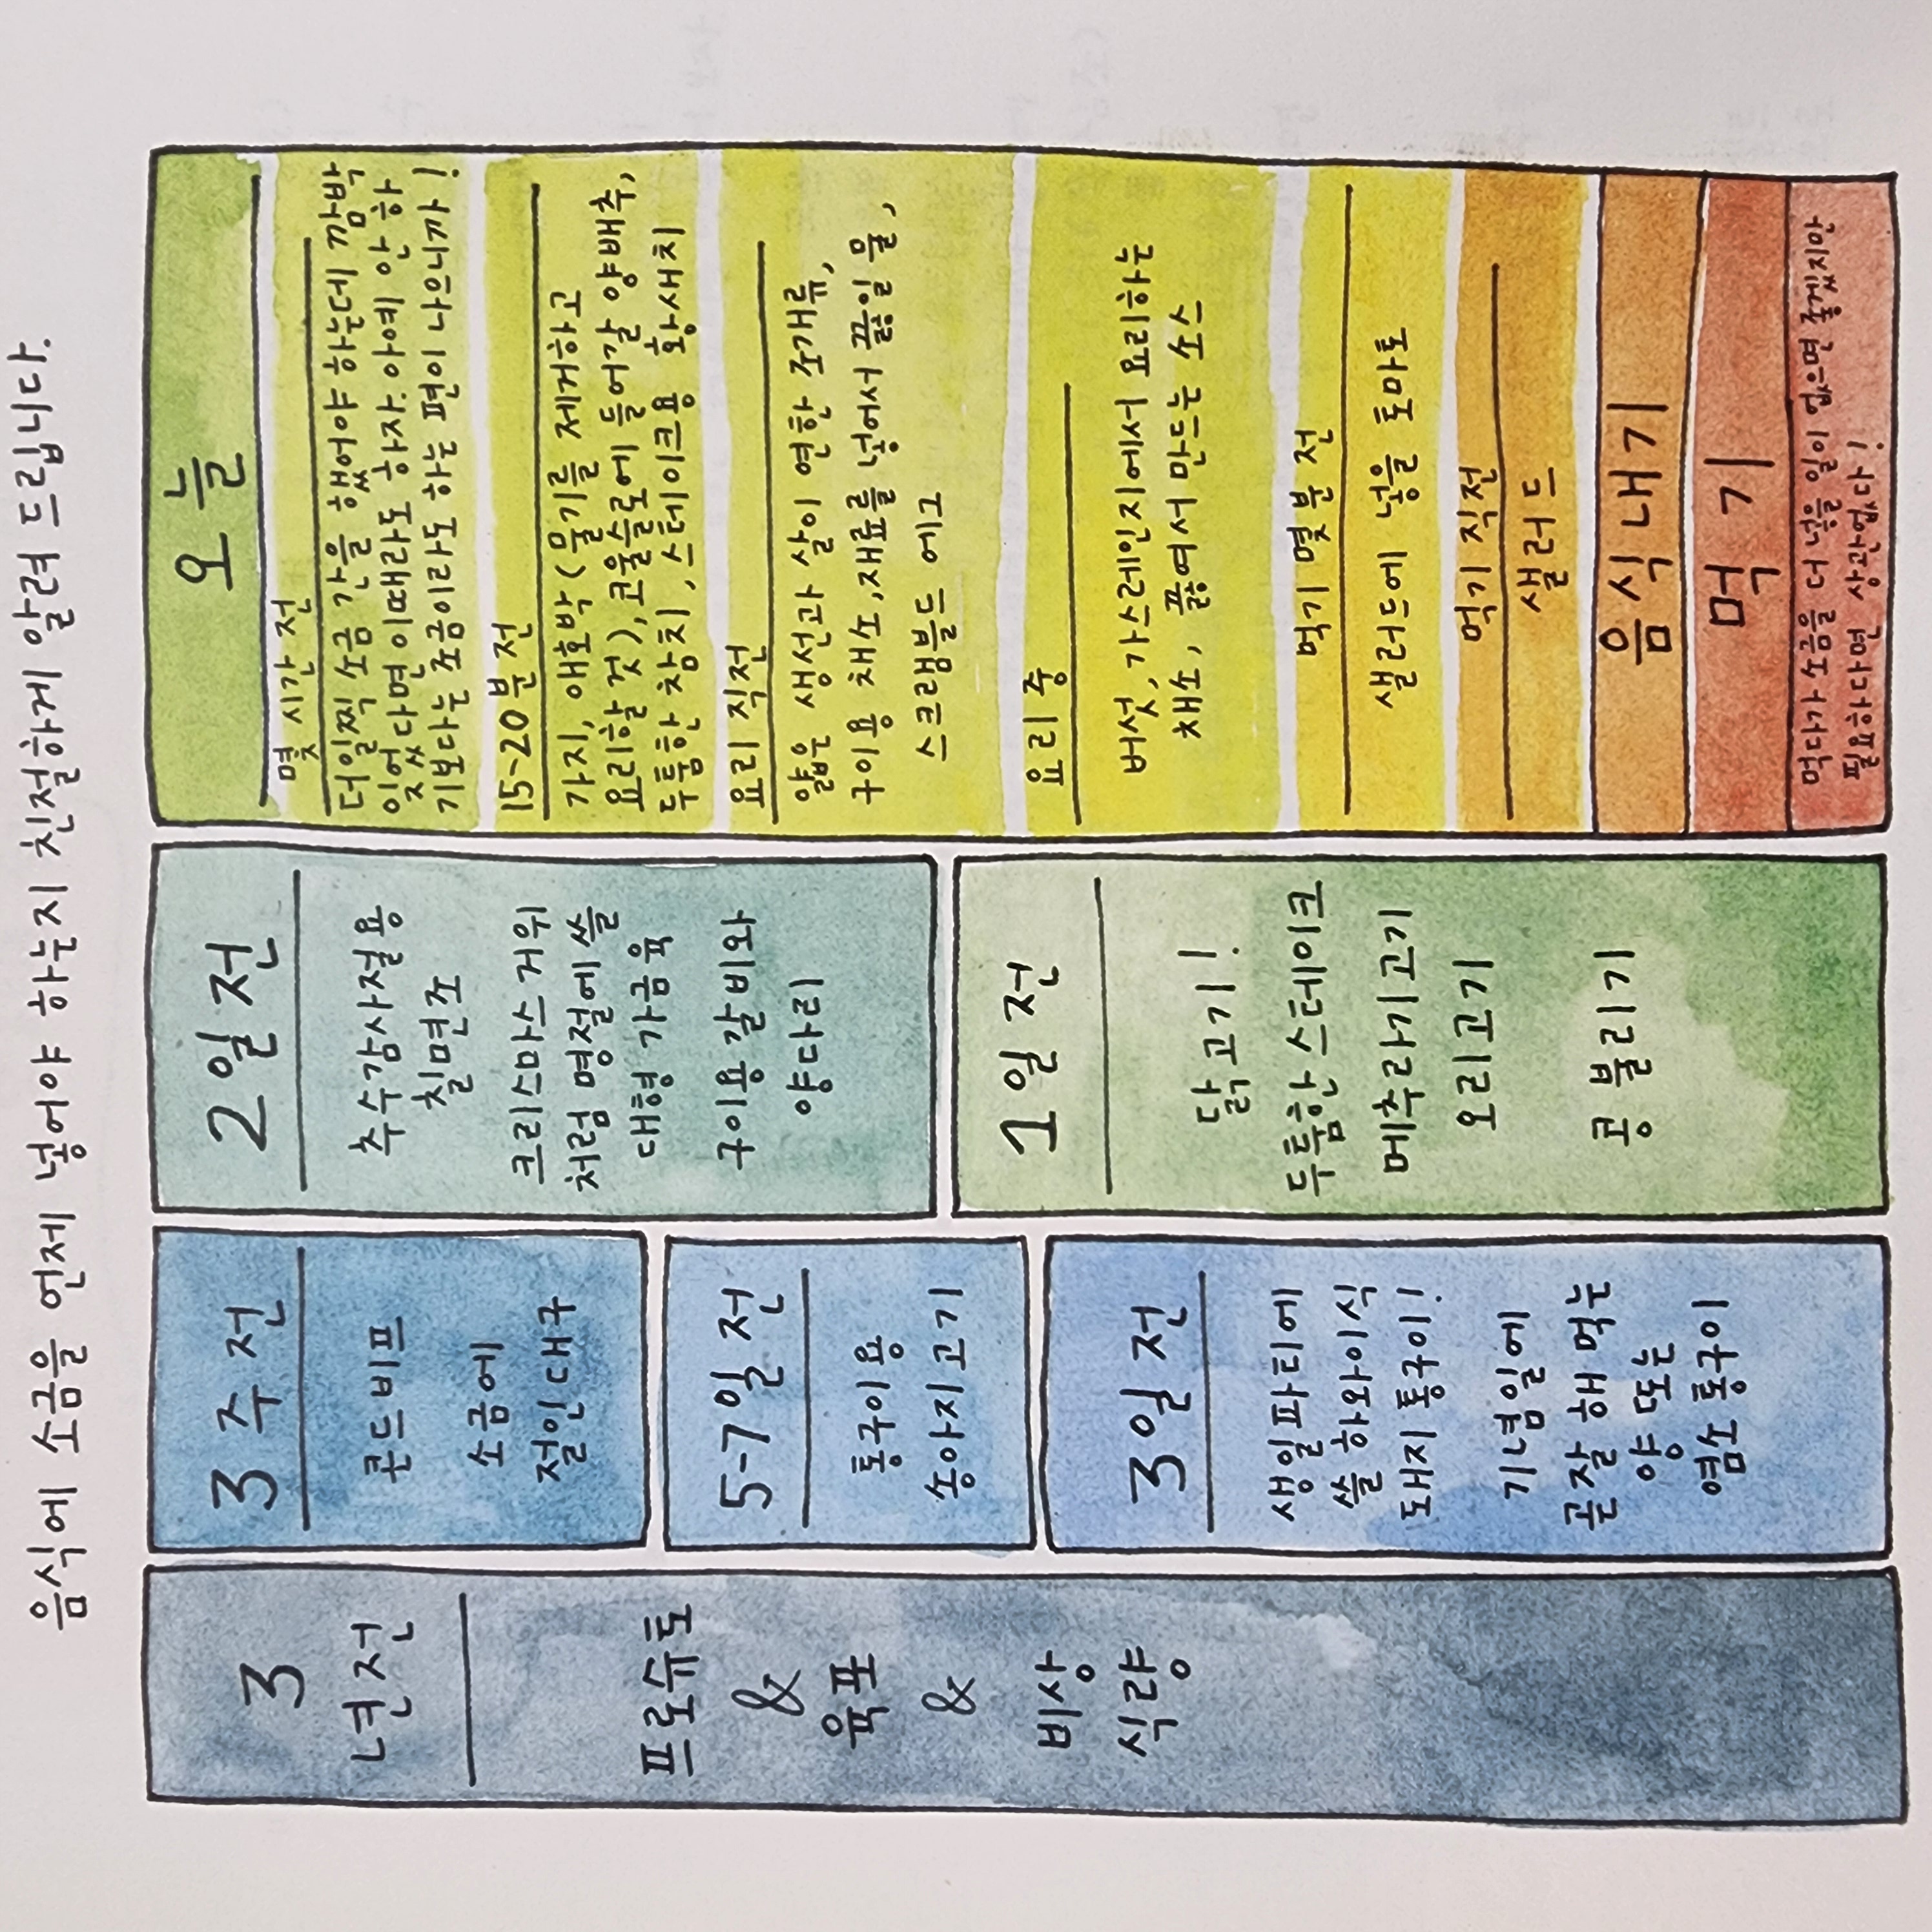 음식에 소금을 언제 넣어야 하는지 친절하게 알려 드립니다.
3
년전
프로슈토
&
육포
&
비상
식량
3주전
콘드비프
소금에
절인 대구
5-7일 전
통구이용
송아지고기
3일 전
생일파티에
쓸 하와이식
돼지 통구이!
기념일에
곧잘 해 먹는
양 또는
염소 통구이
2일 전
추수감사절용
칠면조
크리스마스 거위
처럼 명절에 쓸
대형 가금육
구이용 갈비와
양다리
1일 전
닭고기!
두툼한 스테이크
메추라기고기
오리고기
콩 불리기
오늘
몇 시간 전
더 일찍 소금 간을 했어야 하는데 깜박
잊었다면 이때라도 하자. 아예 안 하
기보다는 조금이라도 하는 편이 나으니까!
15-20분 전
가지, 애호박 (물기를 제거하고
요리할 것), 코울슬로에 들어갈 양배추,
두툼한 참치, 스테이크용 황새치
요리 직전
얇은 생선과 살이 연한 조개류,
구이용 채소, 재료를 넣어서 끓일 물,
스크램블드 에그
요리 중
버섯, 가스레인지에서 요리하는
채소, 끓여서 만드는 소스
먹기 몇분 전
샐러드에 넣을 토마토
먹기 직전
샐러드
음식내기
먹기
먹다가 소금을 더 넣을 일이 없으면 좋겠지만
필요하다면 상관없다!